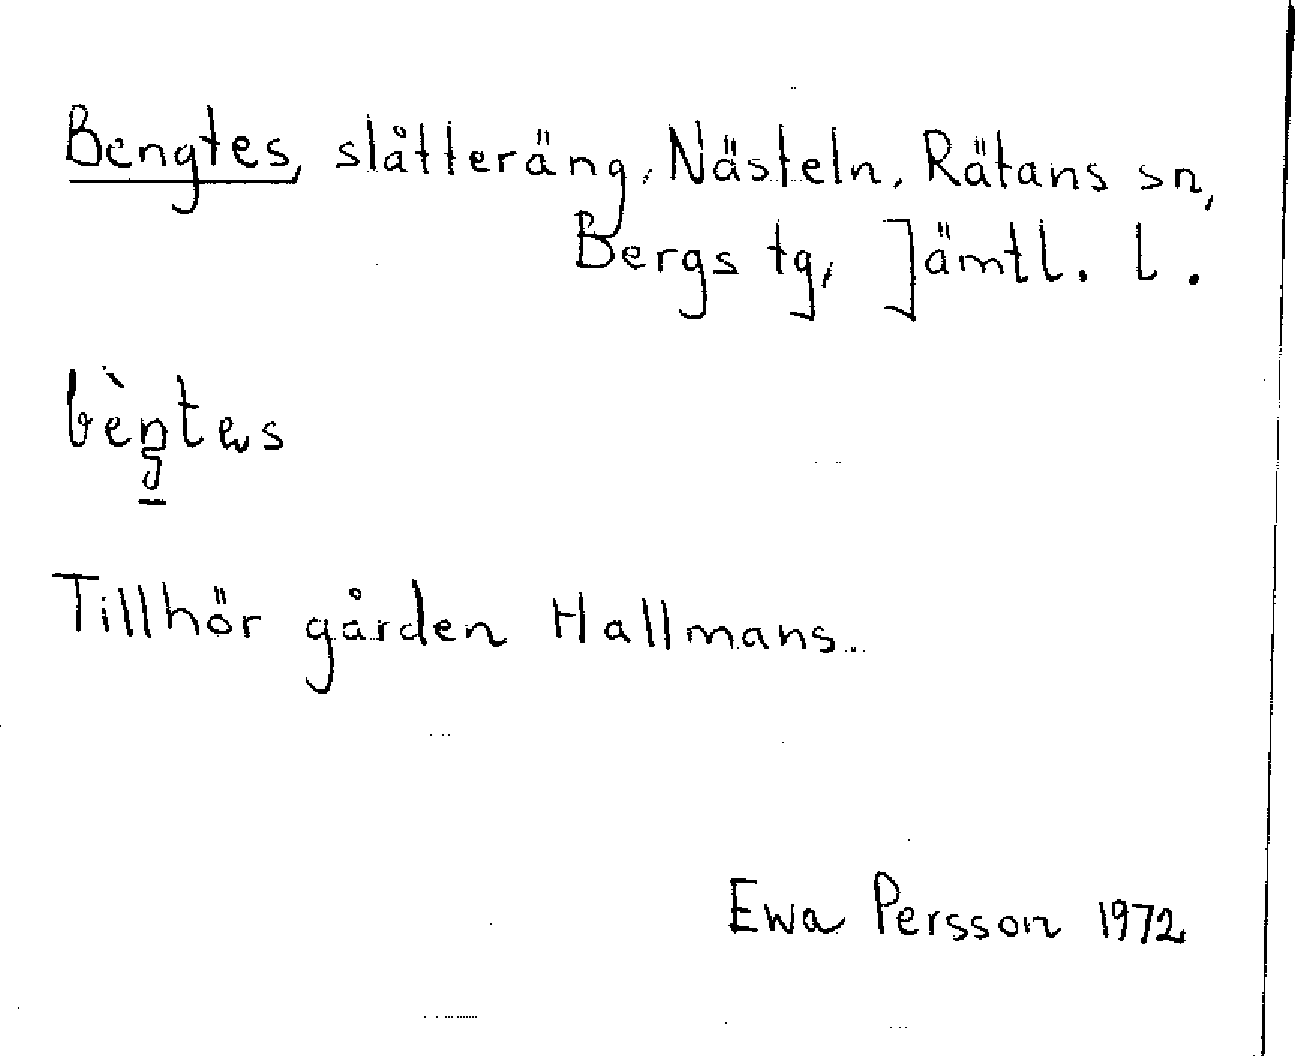 Bengtes, slåtteräng, Nästeln, Rätans sn,
Bergs tg, Jämtl. l.
Tillhör gården Hallmans.
Ewa Persson 1972